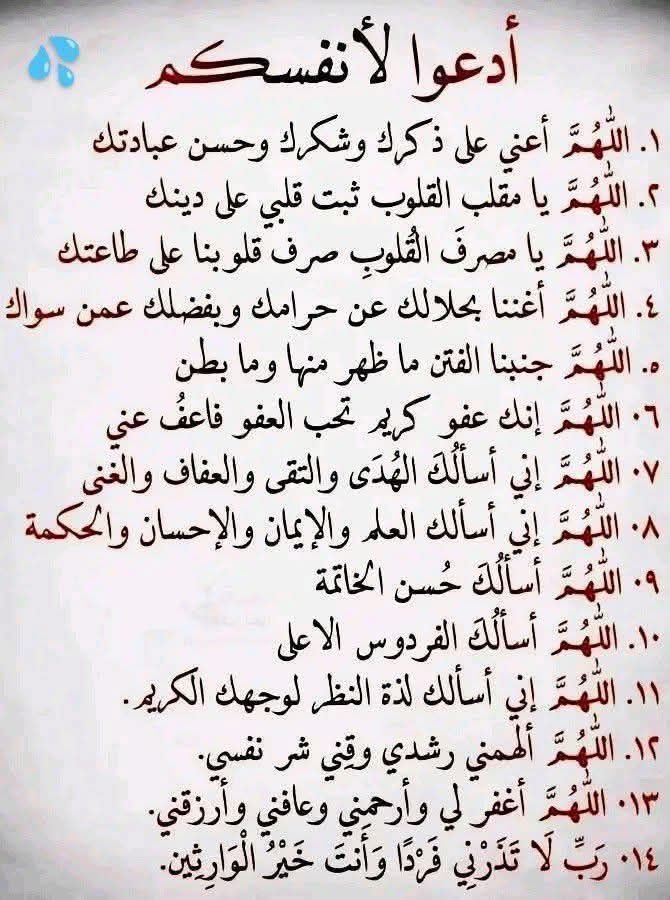 أدعوا لأنفسكم
١. اللَّهُمَّ أعني على ذكرك وشكرك وحسن عبادتك
٢. اللَّهُمَّ يا مقلب القلوب ثبت قلبي على دينك
٣. اللَّهُمَّ يا مصرفَ القُلوبِ صرف قلوبنا على طاعتك
٤. اللَّهُمَّ أغننا بحلالك عن حرامك وبفضلك عمن سواك
٥. اللَّهُمَّ جنبنا الفتن ما ظهر منها وما بطن
٦. اللَّهُمَّ إنك عفو كريم تحب العفو فاعفُ عني
٧. اللَّهُمَّ إني أسألُكَ الهُدَى والتقى والعفاف والغنى
٨. اللَّهُمَّ إني أسألك العلم والإيمان والإحسان والحكمة
٩. اللَّهُمَّ أسألُكَ حُسن الخاتمة
١٠. اللَّهُمَّ أسألُكَ الفردوس الاعلى
١١. اللَّهُمَّ إني أسألك لذة النظر لوجهك الكريم.
١٢. اللَّهُمَّ ألهمني رشدي وقِني شر نفسي.
١٣. اللَّهُمَّ أغفر لي وأرحمني وعافني وأرزقني.
١٤. رَبِّ لَا تَذَرْنِي فَرْدًا وَأَنتَ خَيْرُ الْوَارِثِين.